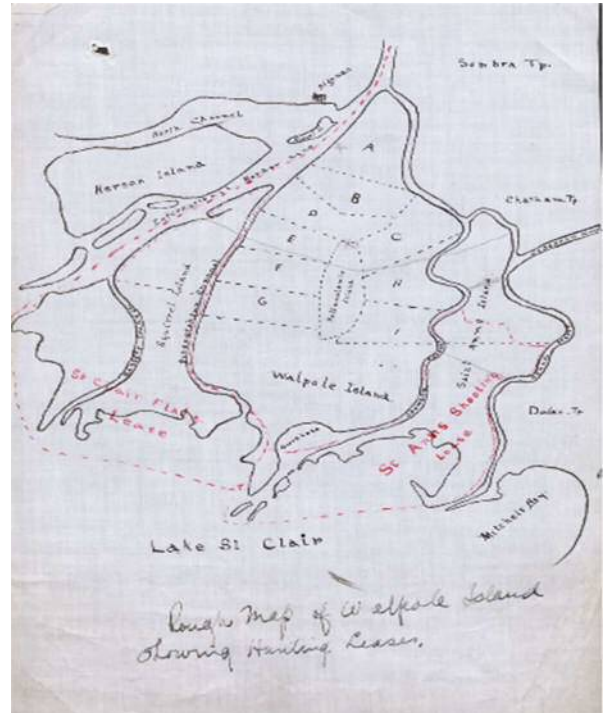 Sombra Tp.
Algonac
North Channel
Harson Island
International Border Line
A
B
C
D
E
F
G
H
I
Chatham Tp
Squirrel Island
Island
Saint Anns Island
Walpole Island
St Clair Flats
Lease
St Anns Shooting
Lease
Dover Tp
Mitchels Bay
Lake St Clair
Rough Map of Walpole Island
Showing Hunting Leases.